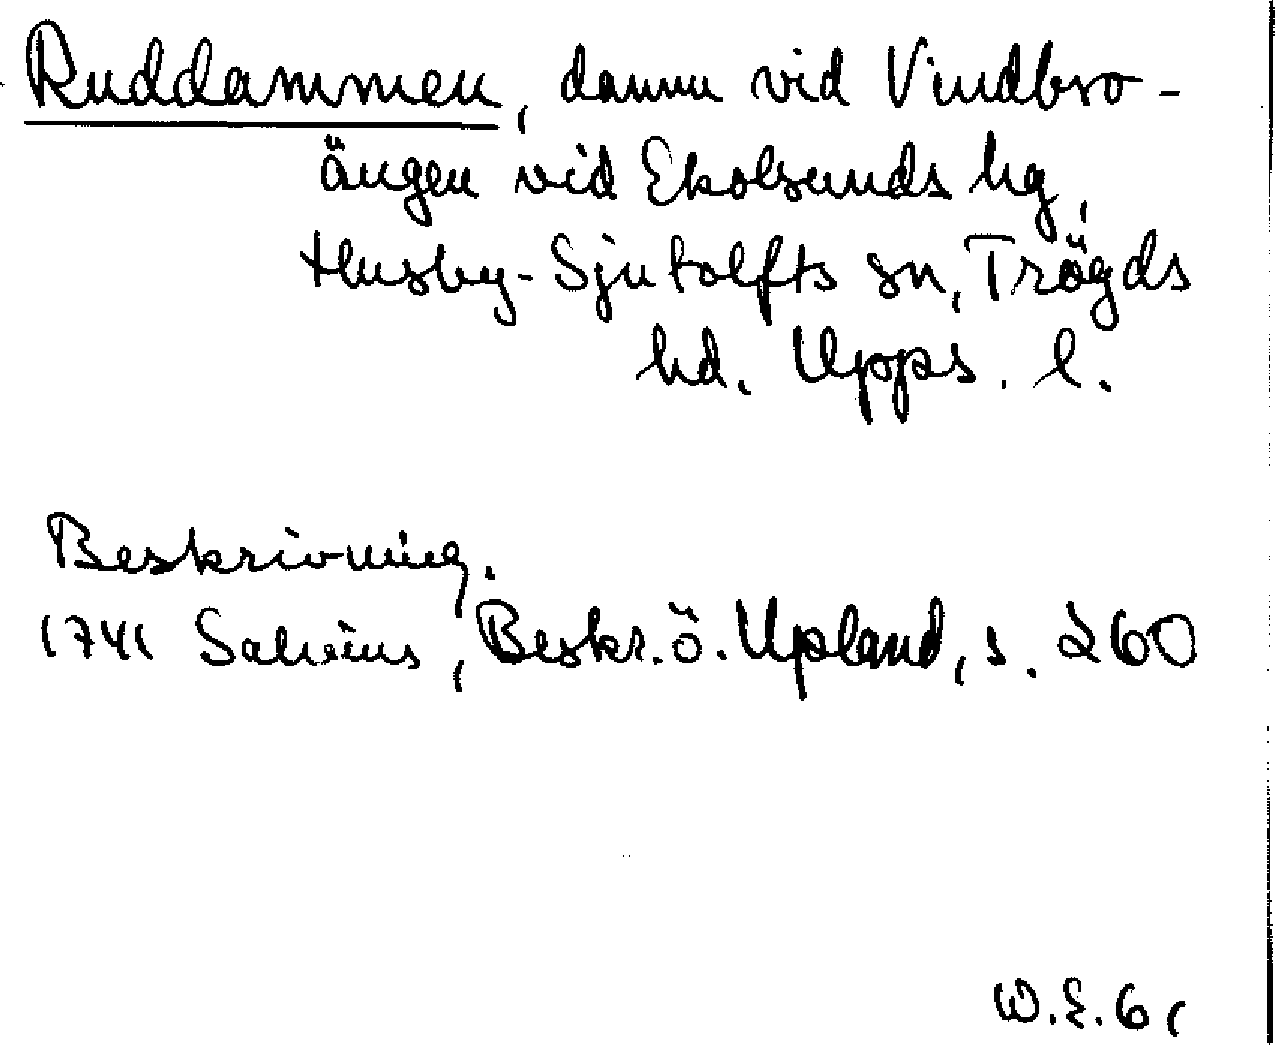 Ruddammen, damm vid Vindbro-
ängen vid Ekolsunds hg,
Husby-Sjutolfts sn, Trögds
hd. Upps. l.
Beskrivning.
1741 Salenius, Beskr. ö. Upland, s. 260
W.E. 61